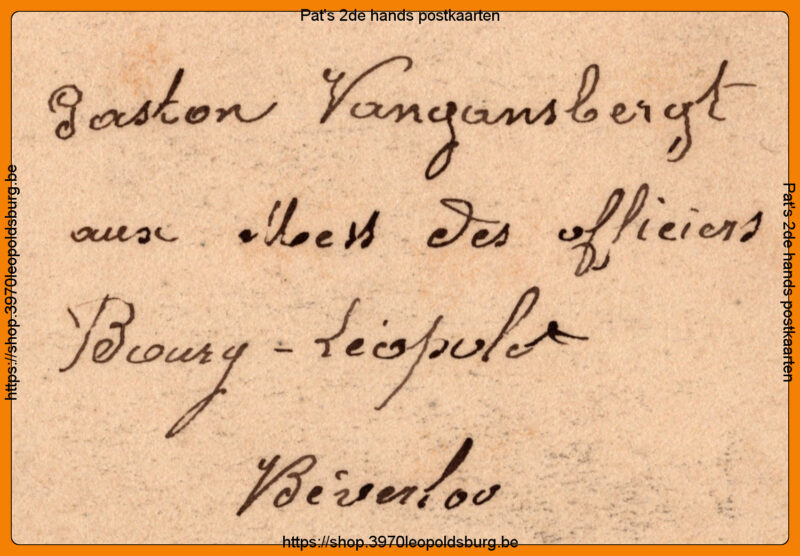 Pat's 2de hands postkaarten
Gaston Vangansbergt
aux Mess des officiers
Bourg-Léopold
Béverloo
https://shop.3970leopoldsburg.be
https://shop.3970leopoldsburg.be
Pat's 2de hands postkaarten